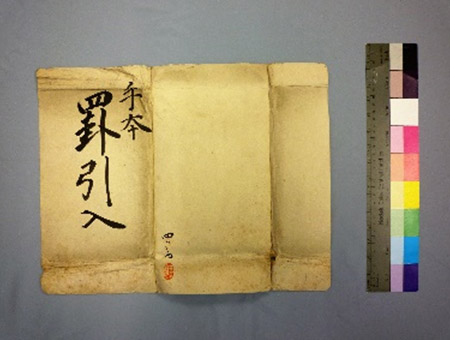 手本
罫引入